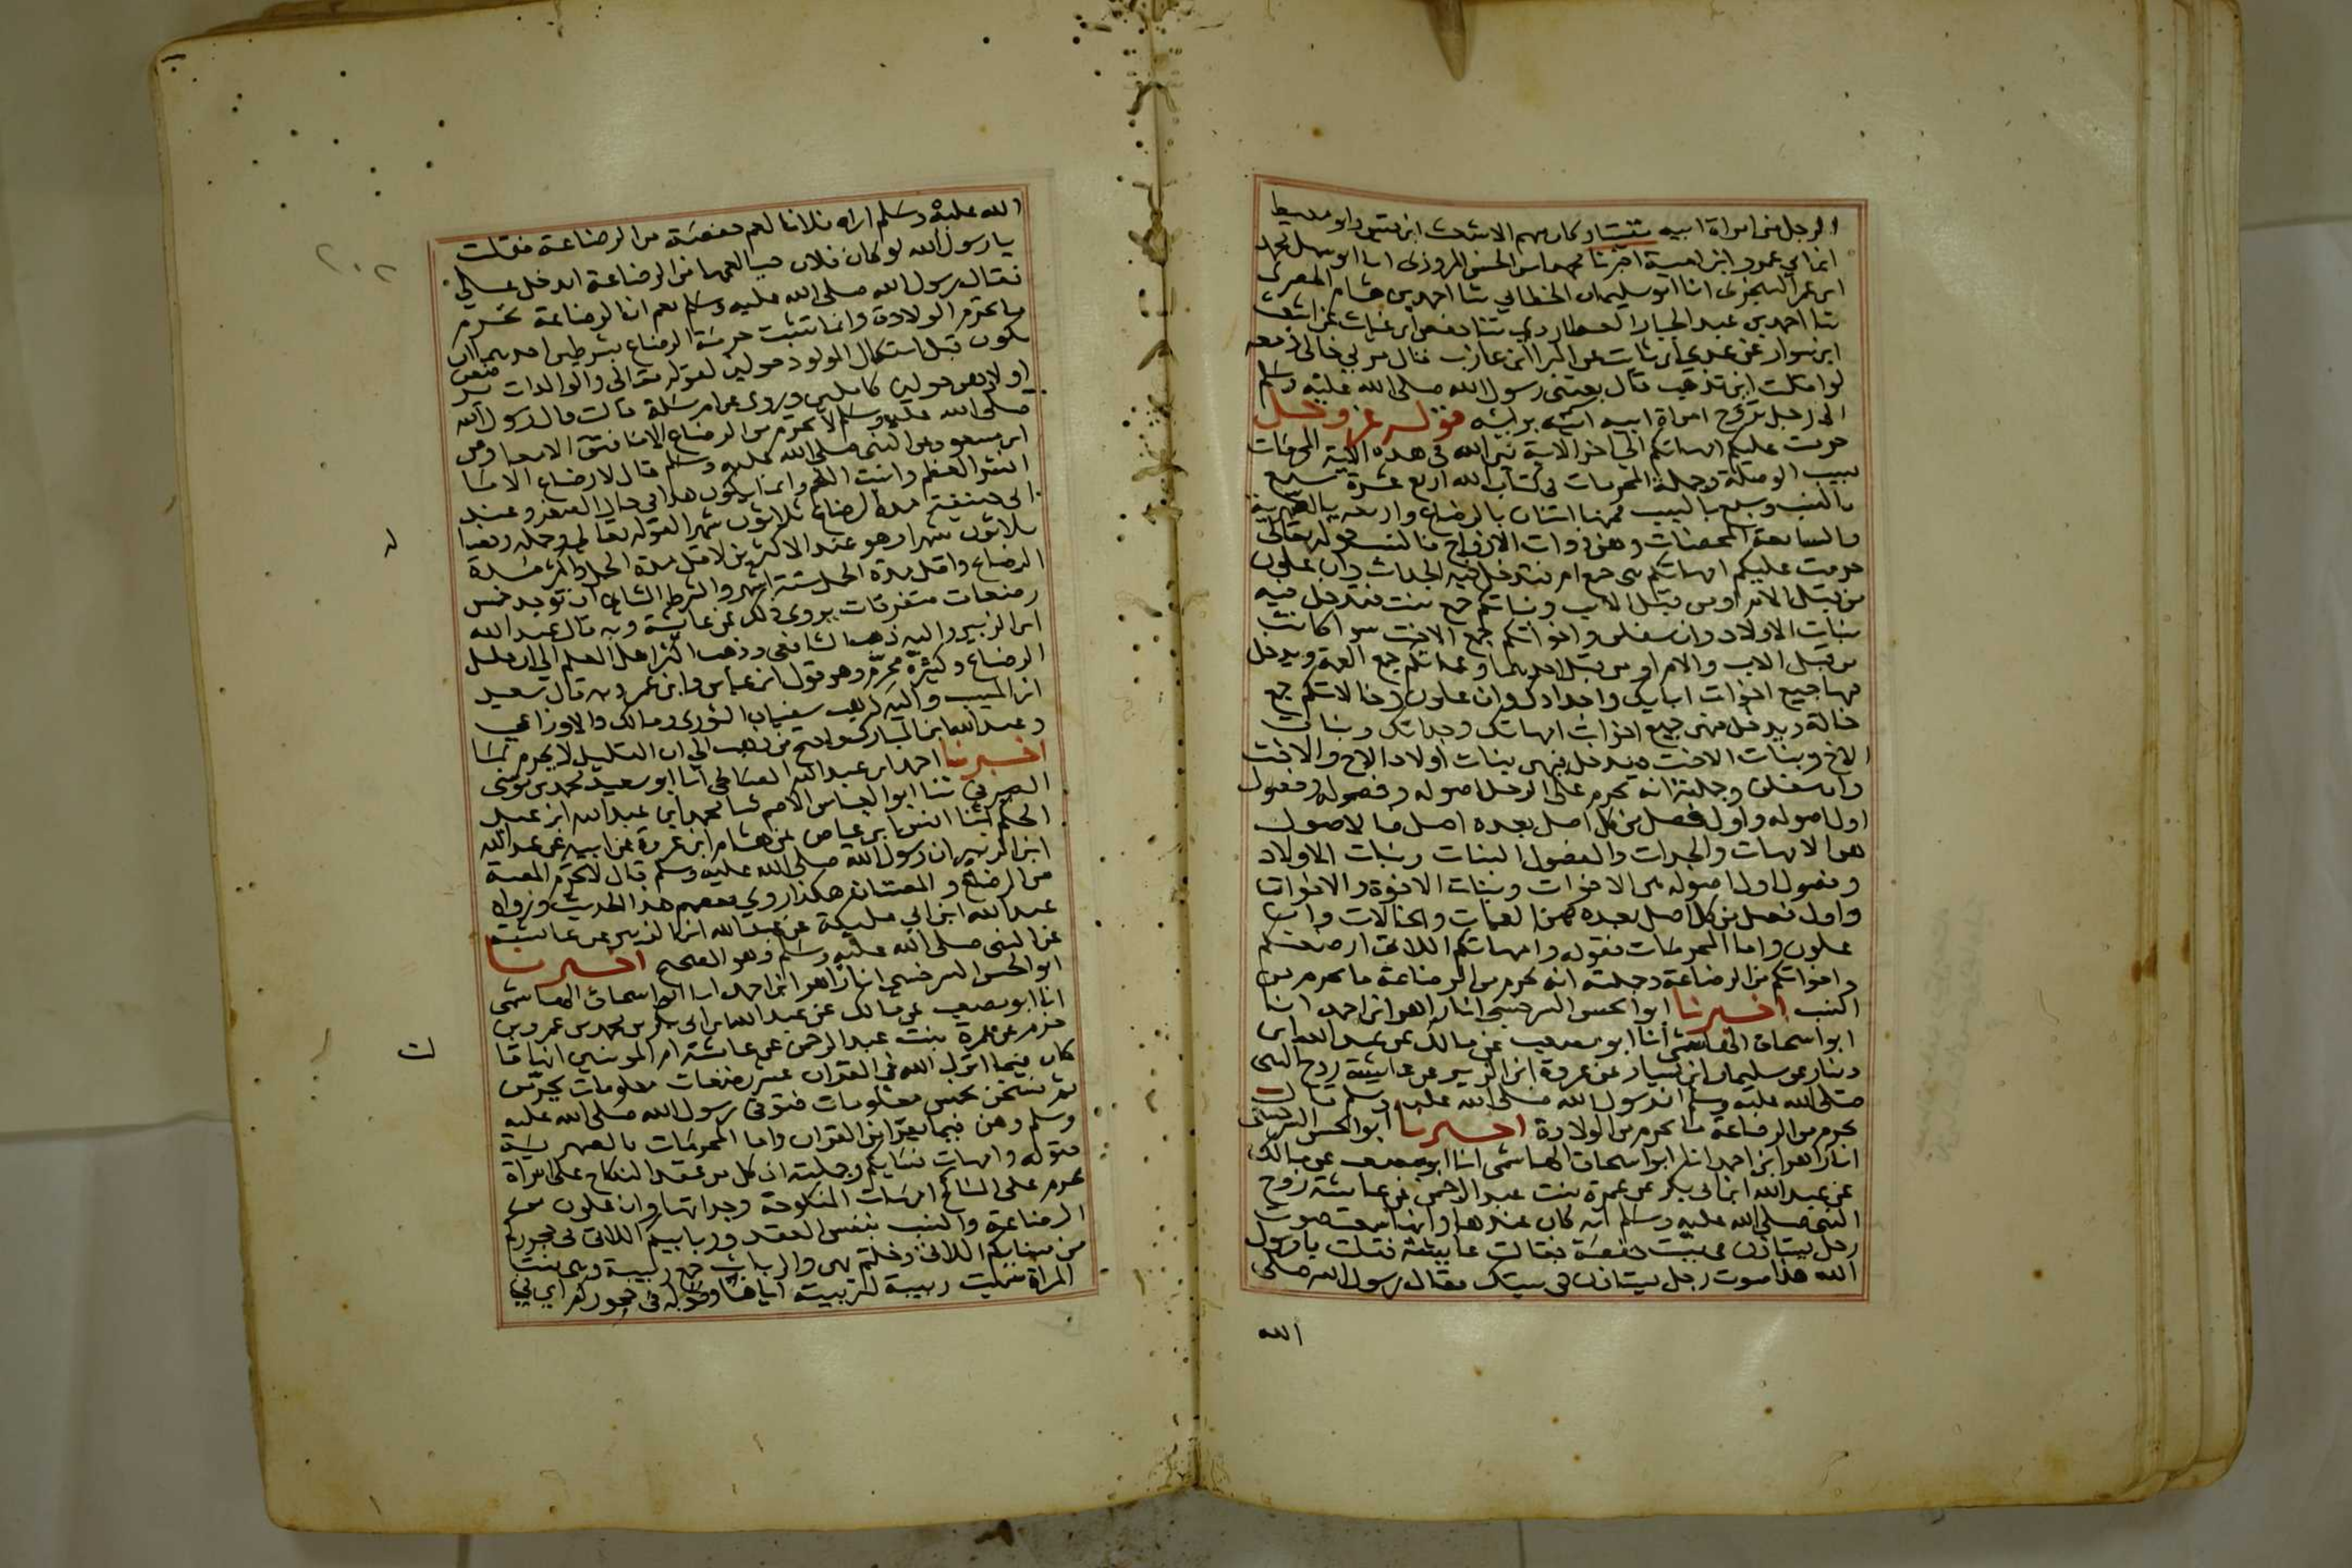 الرجل من امراة ابيه مقتيا وكان منهم الاشعث ابن قيس وابو معيط
ابن ابي عمرو ابن امية اخبرنا محمد بن الحسن المروزي انا ابو سهل محمد
ابن عمر السجزي انا ابو سليمان الخطابي ثنا احمد بن هشام الحضرمي
ثنا احمد بن عبد الجبار العطاردي ثنا حفص ابن غياث عن اشعث
ابن سوار عن عدي ابن ثابت عن البرا ابن عازب قال مر بي خالي ومعه
لوا فقلت اين تذهب قال بعثني رسول الله صلى الله عليه وسلم
الى رجل تزوج امراة ابيه اتيه براسه قوله عز وجل
حرمت عليكم امهاتكم الى اخر الاية بين الله في هذه الاية المحرمات
بسبب الوصلة وجملة المحرمات في كتاب الله اربع عشرة سبع
بالنسب وسبع بالسبب فمنها اثنان بالرضاع واربعه بالصهرية
والسابعة المحصنات وهن ذوات الازواج فالنسب قوله تعالى
حرمت عليكم امهاتكم هي جمع ام فتدخل فيه الجدات وان علون
من قبل الام او من قبل الاب وبناتكم جمع بنت فتدخل فيه
بنات الاولاد وان سفلن واخواتكم جمع الاخت سوا كانت
من قبل الاب والام او من قبل احدهما وعماتكم جمع العمة ويدخل
فيها جميع اخوات ابايك واجدادك وان علون وخالاتكم جمع
خالة ويدخل فيهن جميع اخوات امهاتك وجداتك وبنات
الاخ وبنات الاخت ويدخل فيهن بنات اولاد الاخ والاخت
وان سفلن وجملته انه يحرم على الرجل اصوله وفصوله وفصول
اول اصوله واول فصل من كل اصل بعده اصل فالاصول
هن الامهات والجدات والفصول البنات وبنات الاولاد
وفصول اول اصوله هن الاخوات وبنات الاخوة والاخوات
واول فصل من كل اصل بعده هن العمات والخالات وان
علون واما المحرمات فقوله وامهاتكم اللاتي ارضعنكم
واخواتكم من الرضاعة وجملته انه يحرم من الرضاعة ما يحرم من
النسب اخبرنا ابو الحسن السرخسي انا زاهر ابن احمد انا
ابو اسحاق الهاشمي انا ابو مصعب عن مالك عن عبد الله ابن
دينار عن سليمان ابن يسار عن عروة ابن الزبير عن عايشة زوج النبي
صلى الله عليه وسلم ان رسول الله صلى الله عليه وسلم قال
يحرم من الرضاعة ما يحرم من الولادة اخبرنا ابو الحسن السرخسي
انا زاهر ابن احمد انا ابو اسحاق الهاشمي انا ابو مصعب عن مالك
عن عبد الله ابن ابي بكر عن عمرة بنت عبد الرحمن عن عايشة زوج
النبي صلى الله عليه وسلم انه كان عندها وانها سمعت صوت
رجل يستاذن في بيت حفصة فقالت عايشة فقلت يا رسول
الله هذا صوت رجل يستاذن في بيتك فقال رسول الله صلى
الله
الله عليه وسلم اراه فلانا لعم حفصة من الرضاعة فقلت
يا رسول الله لو كان فلان حيا لعمها من الرضاعة ايدخل علي
فقال رسول الله صلى الله عليه وسلم نعم ان الرضاعة تحرم
ما تحرم الولادة وانما تثبت حرمة الرضاع بشرطين احدهما ان
يكون قبل استكمال المولود حولين لقوله تعالى والوالدات يرضعن
اولادهن حولين كاملين وروي عن ام سلمة قالت قال رسول الله
صلى الله عليه وسلم لا يحرم من الرضاع الا ما فتق الامعا وعن
ابن مسعود عن النبي صلى الله عليه وسلم قال لا رضاع الا ما
انشز العظم وانبت اللحم وانما يكون هذا في حال الصغر وعند
ابي حنيفة مدة الرضاع ثلاثون شهرا لقوله تعالى وحمله وفصاله
ثلاثون شهرا وهو عند الاكثرين لاقل مدة الحمل واكثر مدة
الرضاع واقل مدة الحمل ستة اشهر والشرط الثاني ان توجد خمس
رضعات متفرقات يروى ذلك عن عايشة وبه قال عبد الله
ابن الزبير واليه ذهب الشافعي وذهب اكثر اهل العلم الى ان قليل
الرضاع وكثيره محرم وهو قول ابن عباس وابن عمر وبه قال سعيد
ابن المسيب واليه ذهب سفيان الثوري ومالك والاوزاعي
وعبد الله ابن المبارك واحتج من ذهب الى ان القليل لا يحرم بما
اخبرنا احمد ابن عبد الله الصالحي انا ابو سعيد محمد بن موسى
الصيرفي ثنا ابو العباس الاصم ثنا محمد ابن عبد الله ابن عبد
الحكم ثنا انس ابن عياض عن هشام ابن عروة عن ابيه عن عبد الله
ابن الزبير ان رسول الله صلى الله عليه وسلم قال لا تحرم المصة
من الرضاع والمصتان هكذا روي بعضهم هذا الحديث ورواه
عبد الله ابن ابي مليكة عن عبد الله ابن الزبير عن عايشة
عن النبي صلى الله عليه وسلم وهو الصحيح اخبرنا
ابو الحسن السرخسي انا زاهر ابن احمد انا ابو اسحاق الهاشمي
انا ابو مصعب عن مالك عن عبد الله بن ابي بكر بن محمد بن عمرو بن
حزم عن عمرة بنت عبد الرحمن عن عايشة ام المومنين انها قا
لت
كان فيما انزل الله في القران عشر رضعات معلومات يحرمن
ثم نسخن بخمس معلومات فتوفي رسول الله صلى الله عليه
وسلم وهن فيما يقرا من القران واما المحرمات بالصهرية
قوله وامهات نسايكم وجملته ان كل من عقد النكاح على امراة
تحرم على الناكح امهات المنكوحة وجداتها وان علون من
الرضاعة والنسب بنفس العقد وربايبكم اللاتي في حجوركم
من نسايكم اللاتي دخلتم بهن والربايب جمع ربيبة وهي بنت
المراة سميت ربيبة لتربيته اياها وقوله في حجوركم اي في